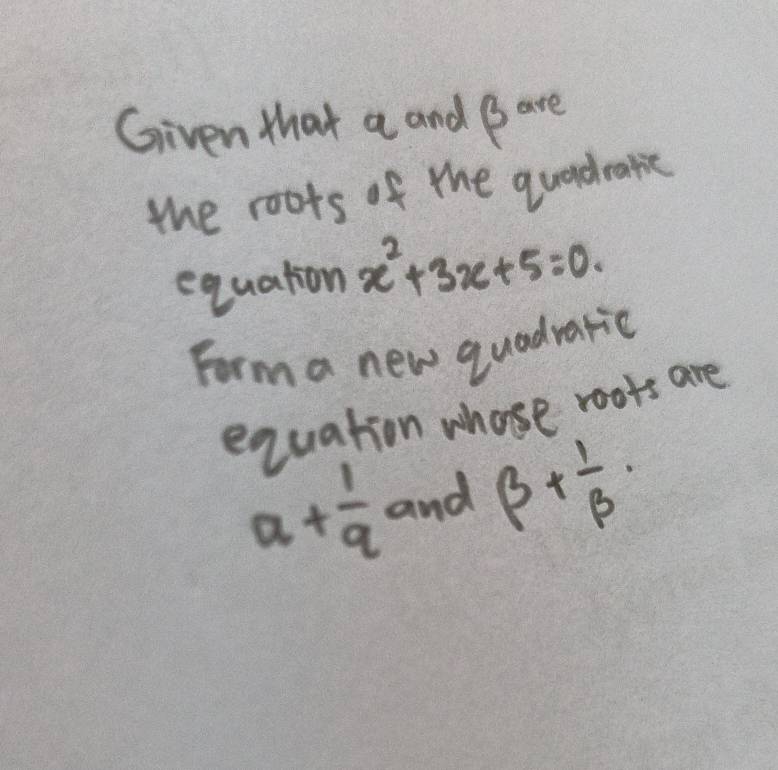 Given that α and β are
the roots of the quadratic
equation x² + 3x + 5 = 0.
Form a new quadratic
equation whose roots are
α + 1/α and β + 1/β.